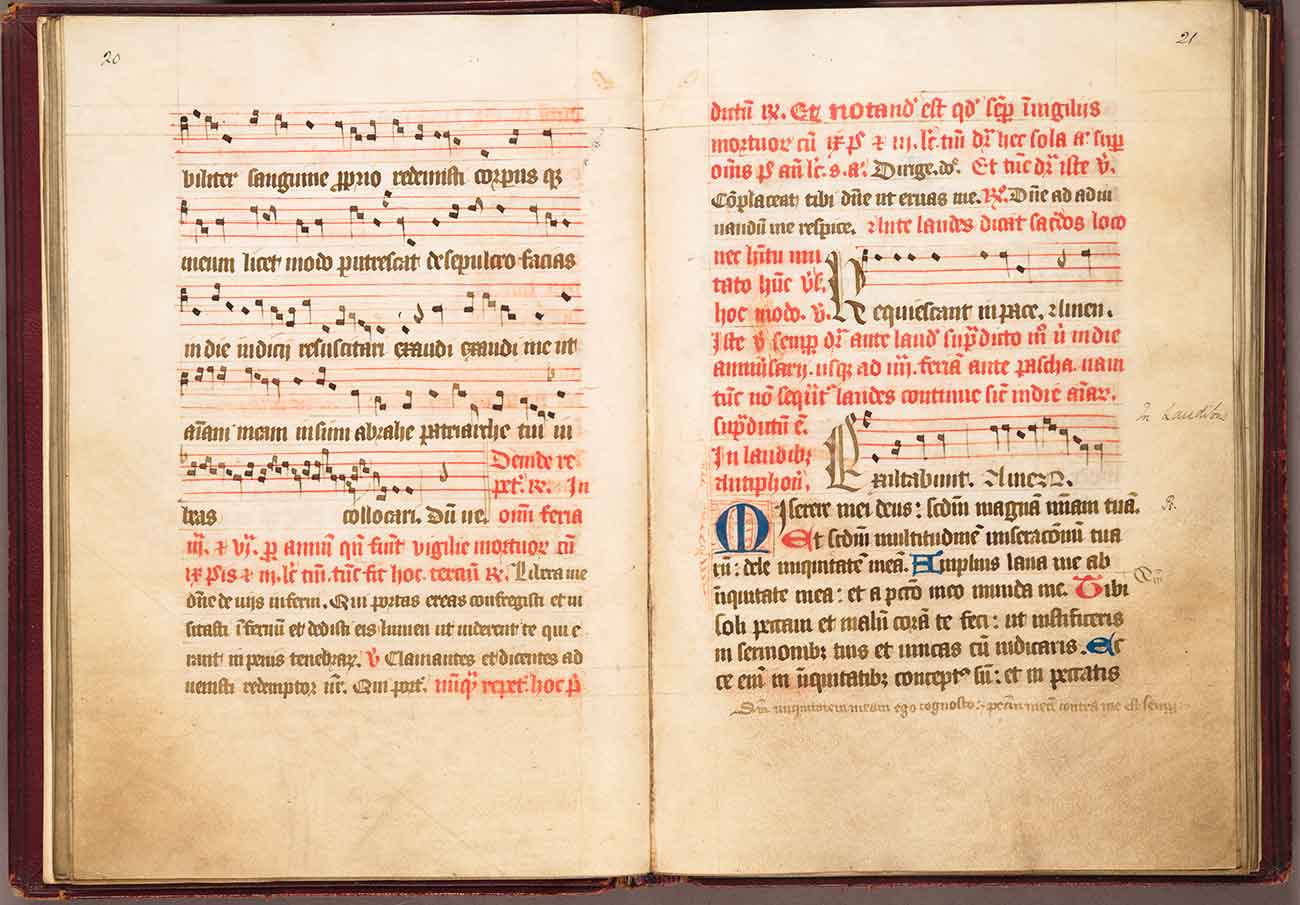 20
biliter sanguine ꝓprio redemisti corpus qꝫ
meum licet modo putrescat de sepulcro facias
in die iudicii resuscitari exaudi exaudi me ut
aīam meam in sinum abrahe patriarche tui iu
beas collocari. Dū ue.
Deinde re
pet͛. ꝶ. In
om̄i feria
iij. ⁊ vj. ꝑ annū qn̄ fiunt vigilie mortuoꝝ cū
ix p̄is ⁊ iij. lc̄ tm̄. tūc fit hoc tercium ꝶ. Libera me
dn̄e de uijs inferni. Qui portas ereas confregisti et ui
sitasti īfernū et dedisti eis lumen ut uiderent te qui e
rant in penis tenebraꝝ. ꝟ Clamantes et dicentes ad
uenisti redemptor nr̄. Qui port͛. nūqͣ repet͛. hoc p̄
21
dictū ꝶ. Et notand͛ est qd͛ sēp̄ ī uigiliis
mortuoꝝ cū ix p̄s ⁊ iij. lc̄ tm̄ dr̄ hec sola a͛ suꝑ
om̄s p̄s an̄ lc̄. s. a͛. Dirige. do͛. Et tūc dr̄ iste ꝟ.
Cōplaceat tibi dn̄e ut eruas me. ꝶ. Dn̄e ad adiu
uandū me respice. Ante laudes dicat sac͛dos loco
nec hītu mu
tato hūc ꝟ.
hoc modo. ꝟ.
Requiescant in pace. Amen.
Iste ꝟ semꝑ dr̄ ante laud͛ sup̄dicto mͦ n̄ in die
anniu͛sarij. usqꝫ ad iiij. feriā ante pascha. nam
tūc nō seqūt͛ laudes continue sic̄ in die aīaꝝ.
sup̄dictū ē.
In laudibꝫ
antiphoīj.
Exultabunt. Amen.
in Laudibus
Miserere mei deus: sedm̄ magnā mīam tuā.
R.
Et sedm̄ multitudinē miseracōnū tua
rū: dele iniquitatē meā. Amplius laua me ab
iniquitate mea: et a pctō meo munda me. Tibi
soli peccaui et malū corā te feci: ut iustificeris
in sermonibꝫ tuis et uincas cū iudicaris. Ec
ce eni͛ in iniquitatibꝫ conceptꝰ sū: et in peccatis
iniquitatem meam ego cognosco: peccm̄ meū contra me est semꝑ